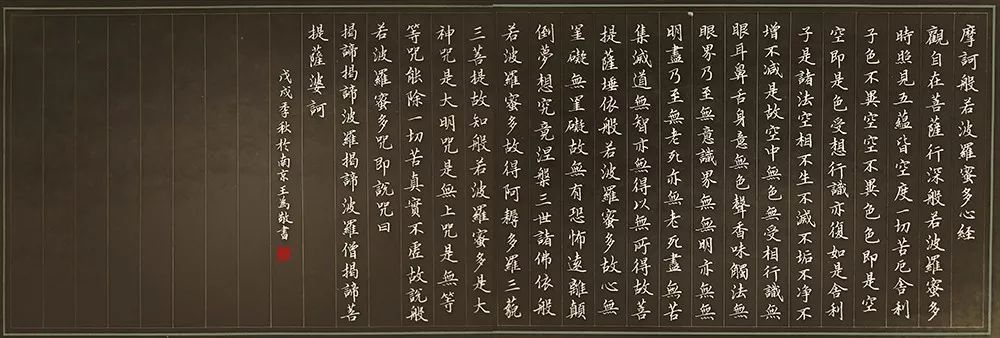 摩訶般若波羅蜜多心経
觀自在菩薩行深般若波羅蜜多
時照見五蘊皆空度一切苦厄舍利
子色不異空空不異色色即是空
空即是色受想行識亦復如是舍利
子是諸法空相不生不滅不垢不净不
增不减是故空中無色無受相行識無
眼耳鼻舌身意無色聲香味觸法無
眼界乃至無意識界無無明亦無無
明盡乃至無老死亦無老死盡無苦
集滅道無智亦無得以無所得故菩
提薩埵依般若波羅蜜多故心無
罣礙無罣礙故無有恐怖遠離顛
倒夢想究竟涅槃三世諸佛依般
若波羅蜜多故得阿耨多羅三藐
三菩提故知般若波羅蜜多是大
神咒是大明咒是無上咒是無等
等咒能除一切苦真實不虛故說般
若波羅蜜多咒即說咒曰
揭諦揭諦波羅揭諦波羅僧揭諦菩
提薩婆訶
戊戌季秋於南京王為敬書